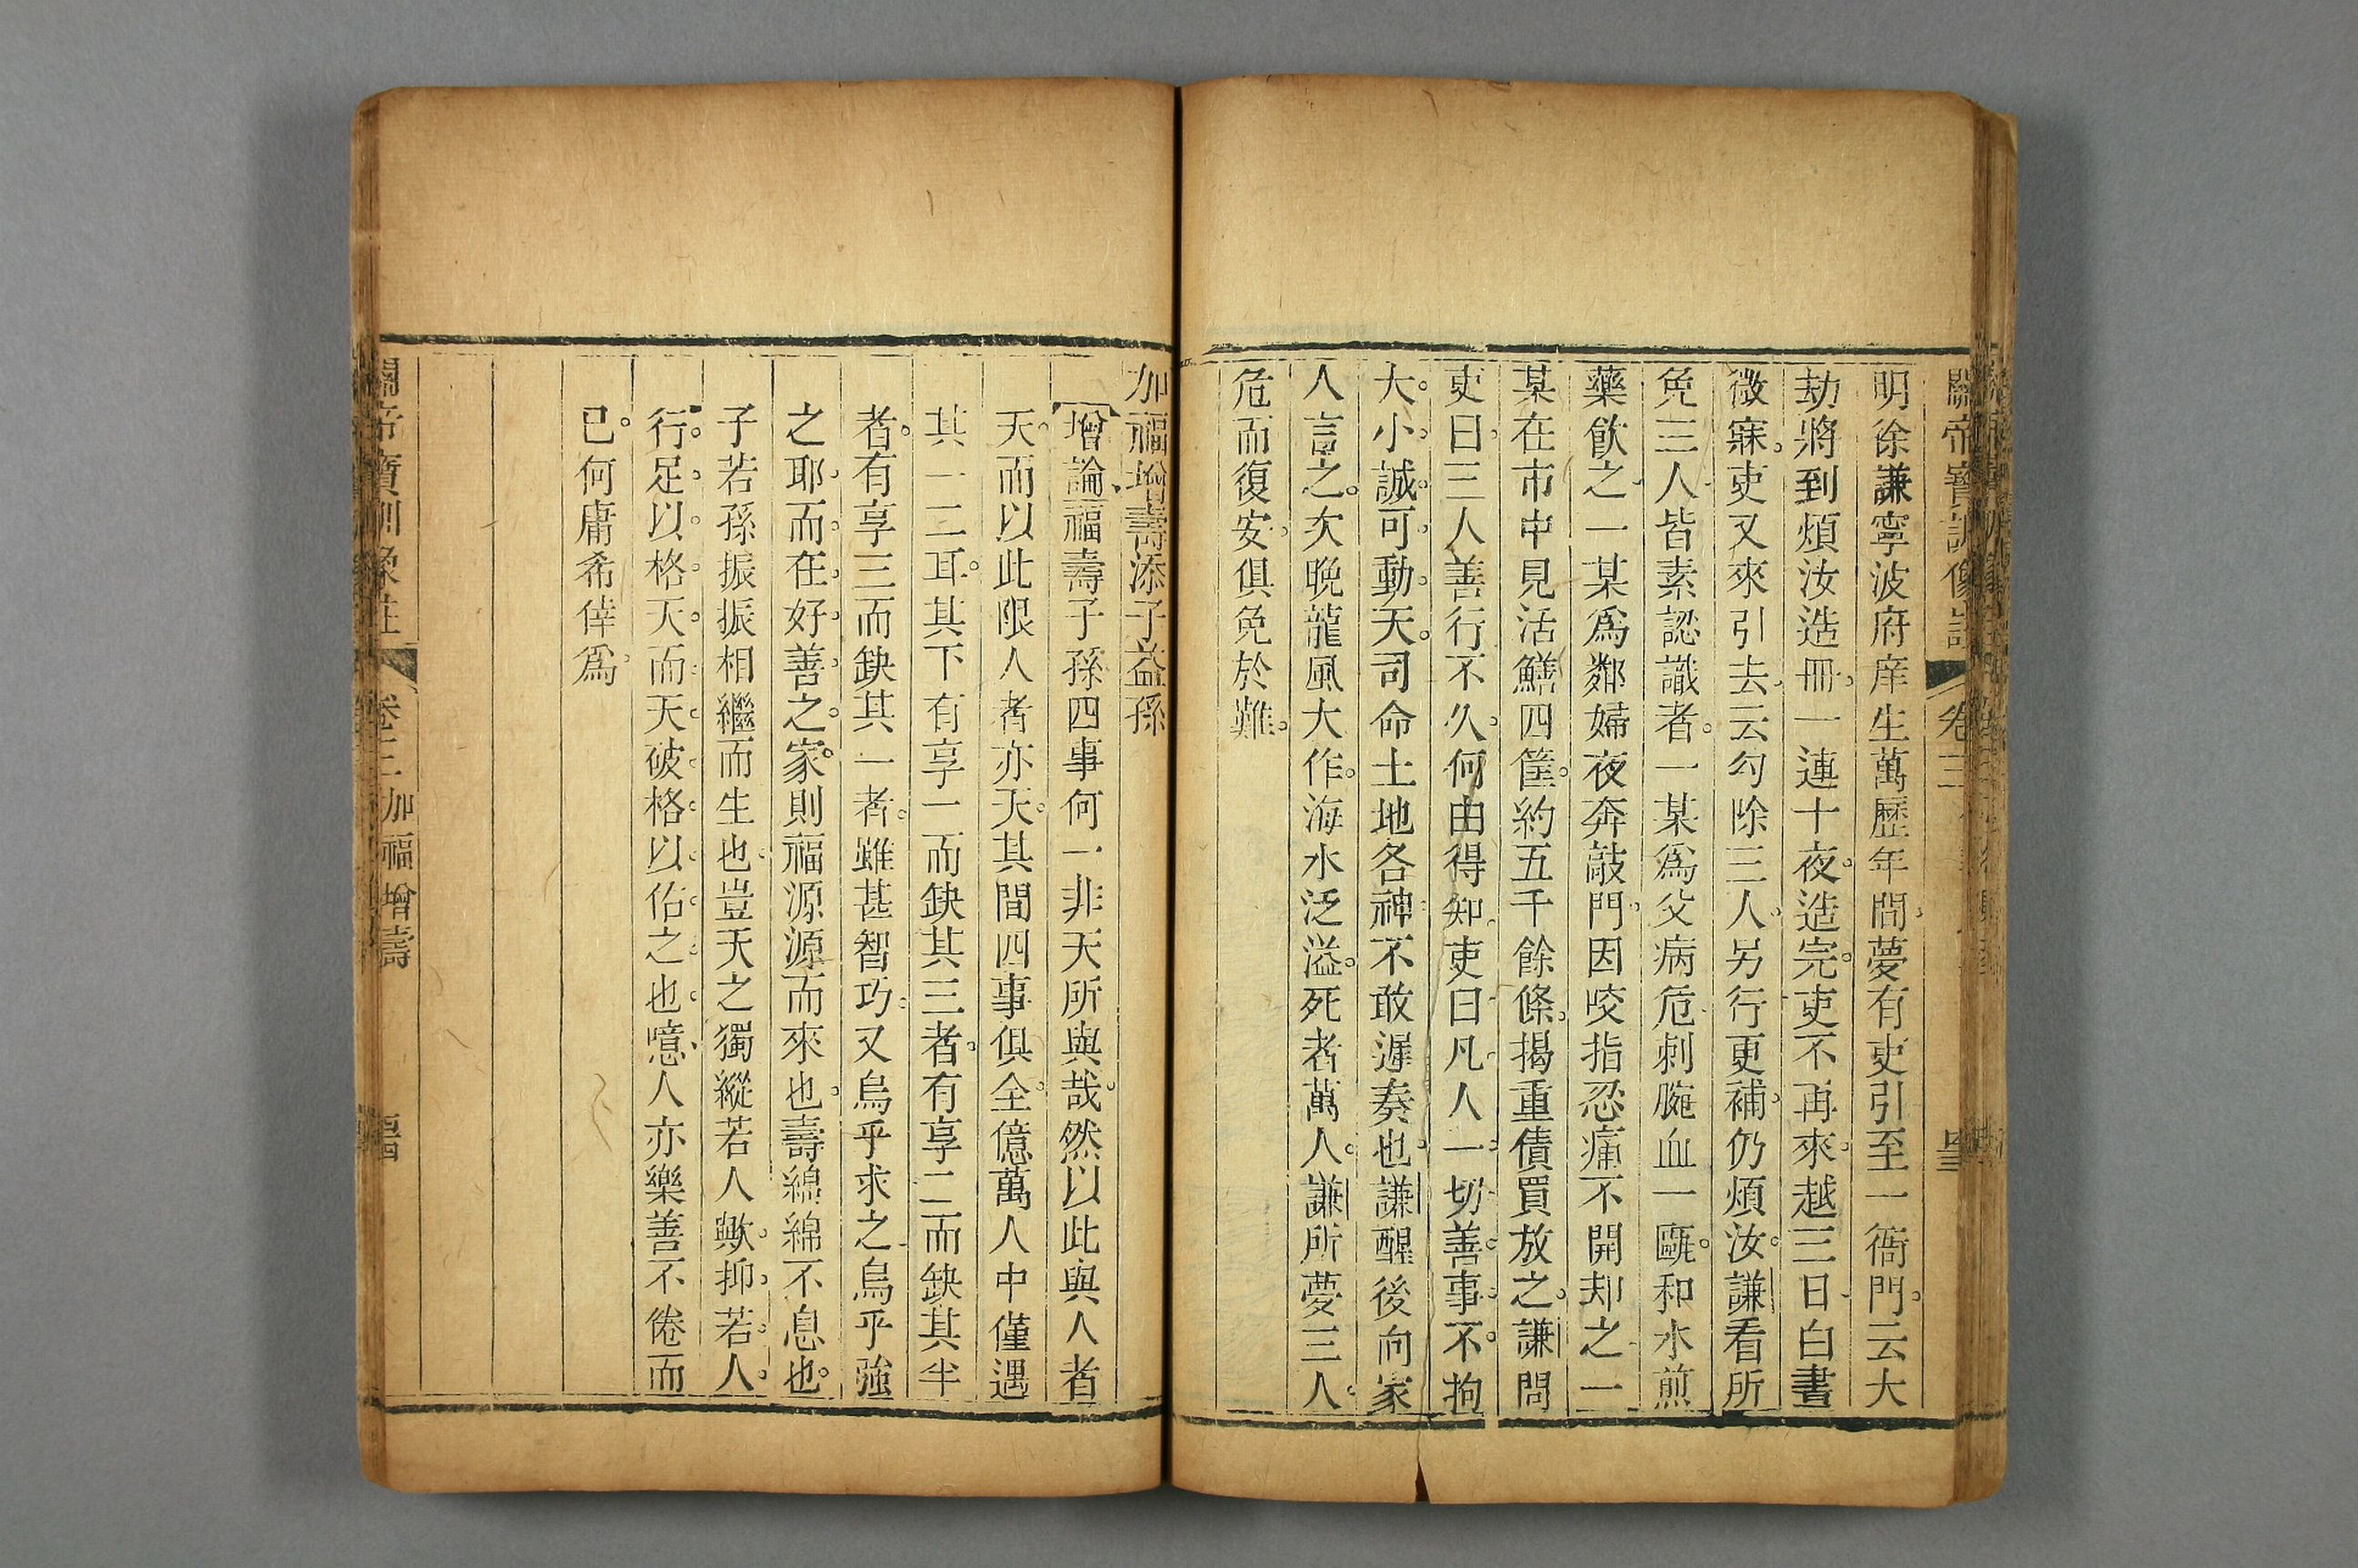 關帝寶訓像註 卷三
明徐謙寧波府庠生萬歷年間夢有吏引至一衙門云大
劫將到煩汝造冊一連十夜造完吏不再來越三日白晝
微寐吏又來引去云勾除三人另行更補仍煩汝謙看所
免三人皆素認識者一某爲父病危刺腕血一甌和水煎
藥飲之一某爲鄰婦夜奔敲門因咬指忍痛不開却之一
某在市中見活鱔四筐約五千餘條揭重債買放之謙問
吏曰三人善行不久何由得知吏曰凡人一切善事不拘
大小誠可動天司命土地各神不敢遲奏也謙醒後向家
人言之次晚龍風大作海水泛溢死者萬人謙所夢三人
危而復安俱免於難
加福增壽添子益孫
增論福壽子孫四事何一非天所與哉然以此與人者
天而以此限人者亦天其間四事俱全億萬人中僅遇
其一二耳其下有享一而缺其三者有享二而缺其半
者有享三而缺其一者雖甚智巧又烏乎求之烏乎強
之耶而在好善之家則福源源而來也壽綿綿不息也
子若孫振振相繼而生也豈天之獨縱若人歟抑若人
行足以格天而天破格以佑之也噫人亦樂善不倦而
已何庸希倖爲
關帝寶訓象註 卷三 加福增壽 四